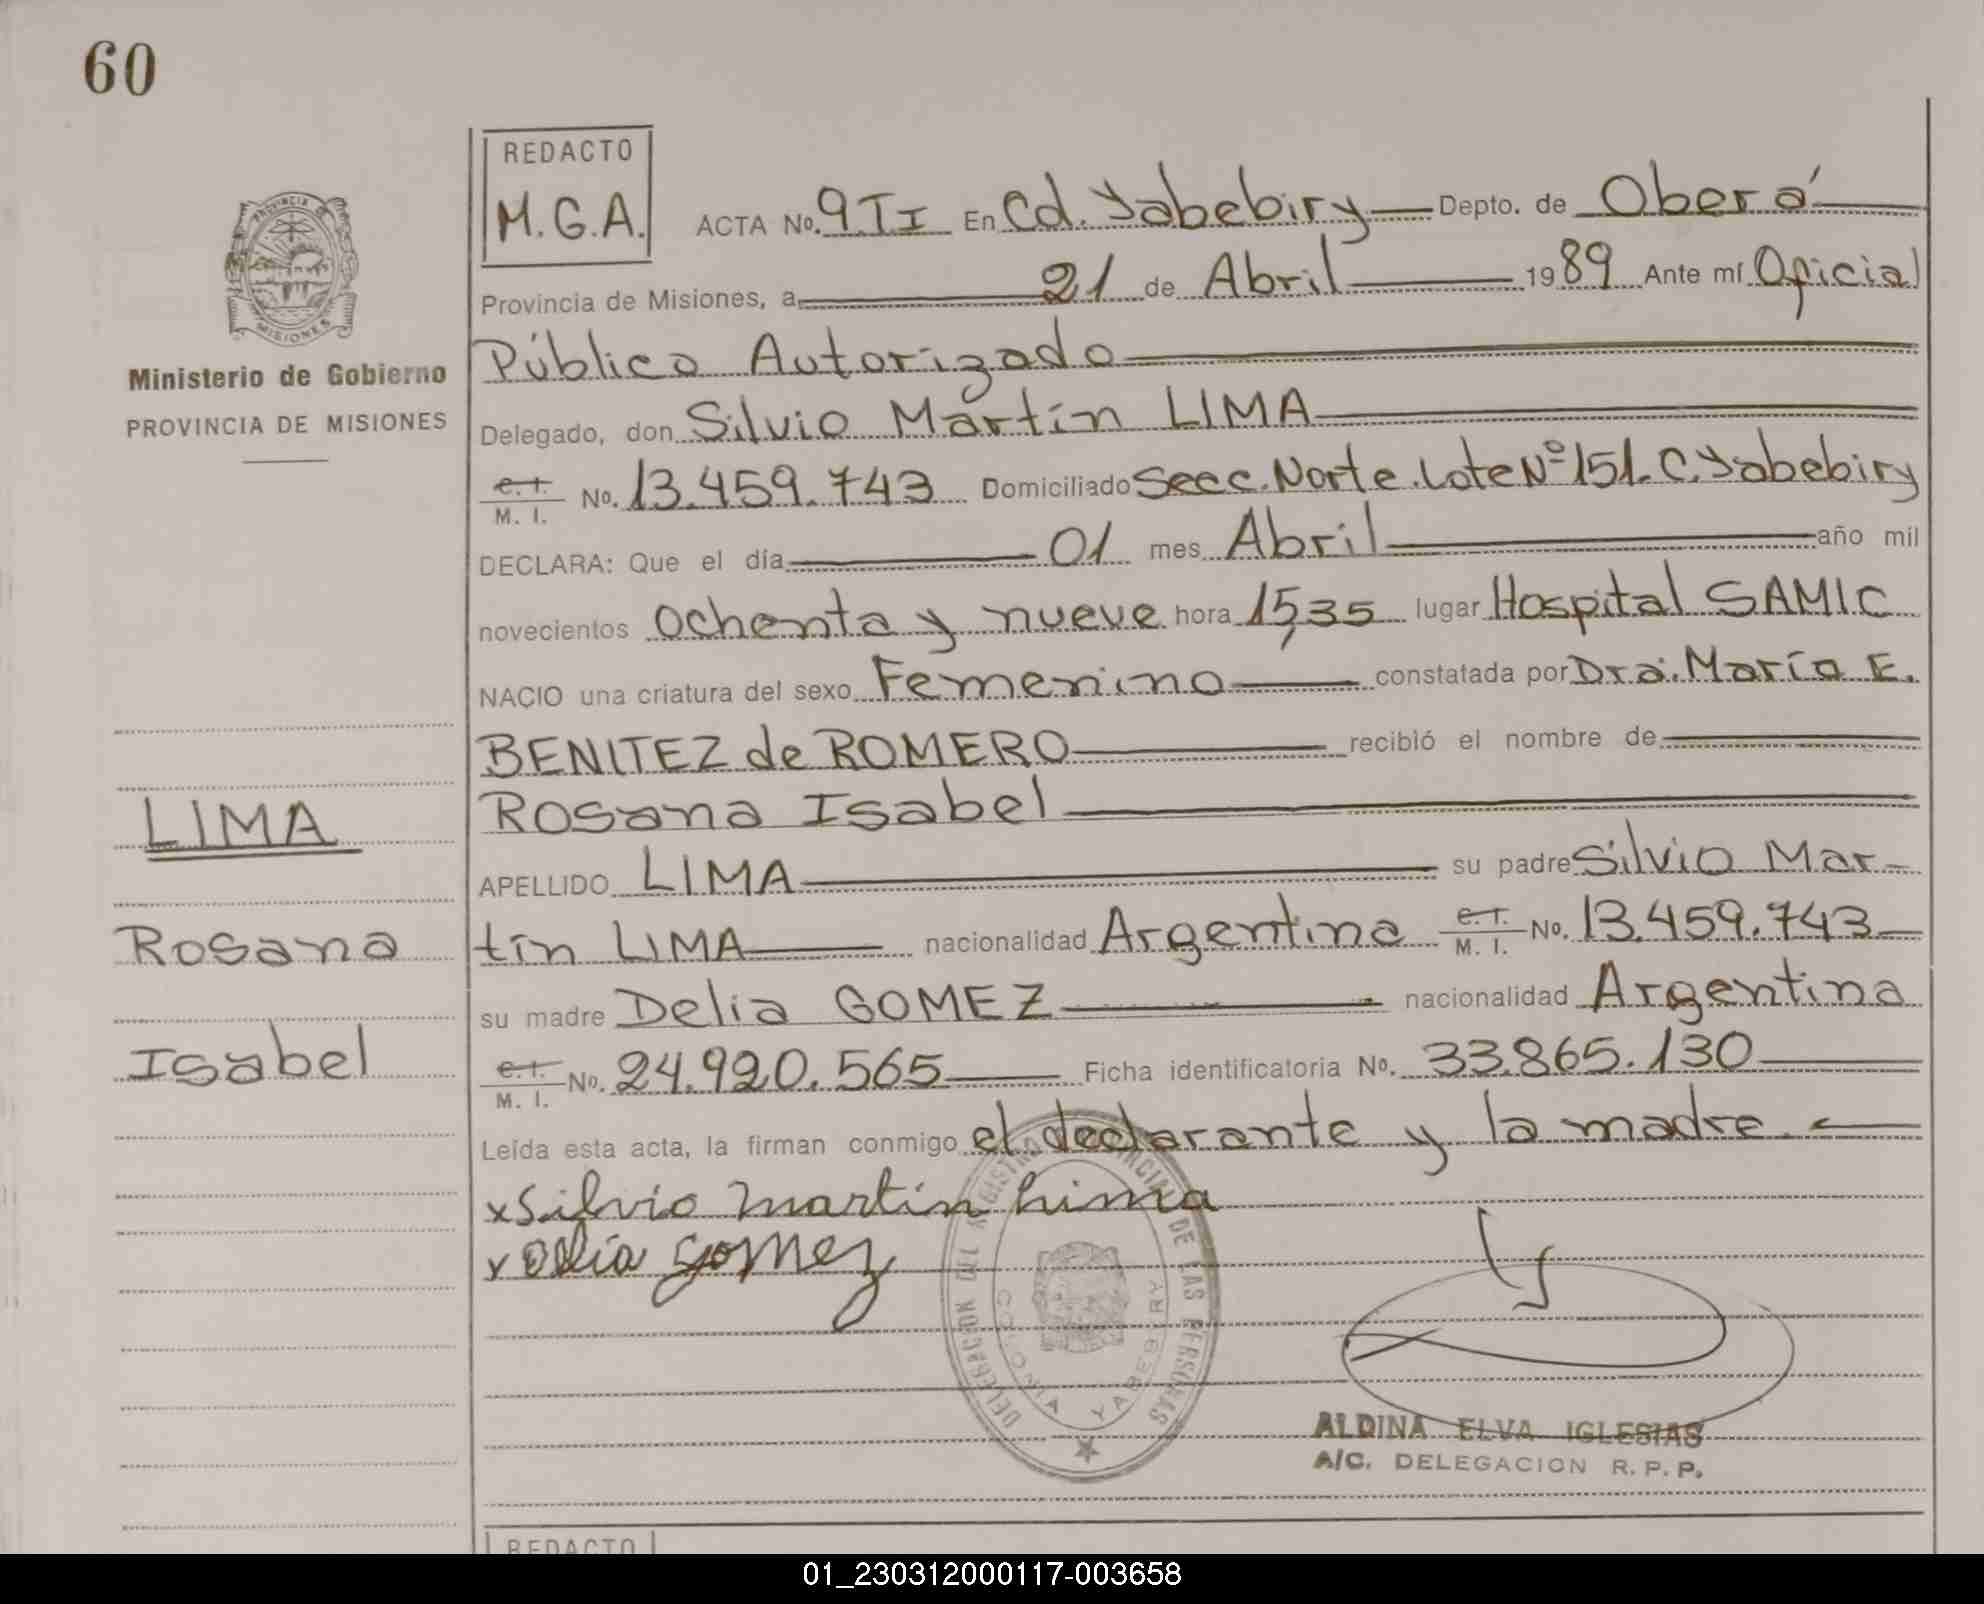 60
REDACTO
M.G.A.
ACTA No. 9 TI En Cd. Yabebiry Depto. de Oberá
Provincia de Misiones, a 21 de Abril 1989 Ante mí Oficial
Público Autorizado
Delegado, don Silvio Martín LIMA
C.I. M. I. No. 13.459.743 Domiciliado Secc. Norte. Lote Nº 151. C. Yabebiry
DECLARA: Que el día 01 mes Abril año mil
novecientos ochenta y nueve hora 15,35 lugar Hospital SAMIC
NACIO una criatura del sexo Femenino constatada por Dra. María E.
BENITEZ de ROMERO recibió el nombre de
Rosana Isabel
APELLIDO LIMA su padre Silvio Mar-
tín LIMA nacionalidad Argentina C.I. M. I. No. 13.459.743
su madre Delia GOMEZ nacionalidad Argentina
C.I. M. I. No. 24.920.565 Ficha identificatoria No. 33.865.130
Leída esta acta, la firman conmigo el declarante y la madre.
x Silvio Martín Lima
x Delia Gomez
PROVINCIA DE MISIONES
Ministerio de Gobierno
PROVINCIA DE MISIONES
LIMA
Rosana
Isabel
DELEGACION DEL REGISTRO PROVINCIAL DE LAS PERSONAS
COLONIA YABEBIRY
ALDINA ELVA IGLESIAS
A/C. DELEGACION R. P. P.
REDACTO
01_230312000117-003658